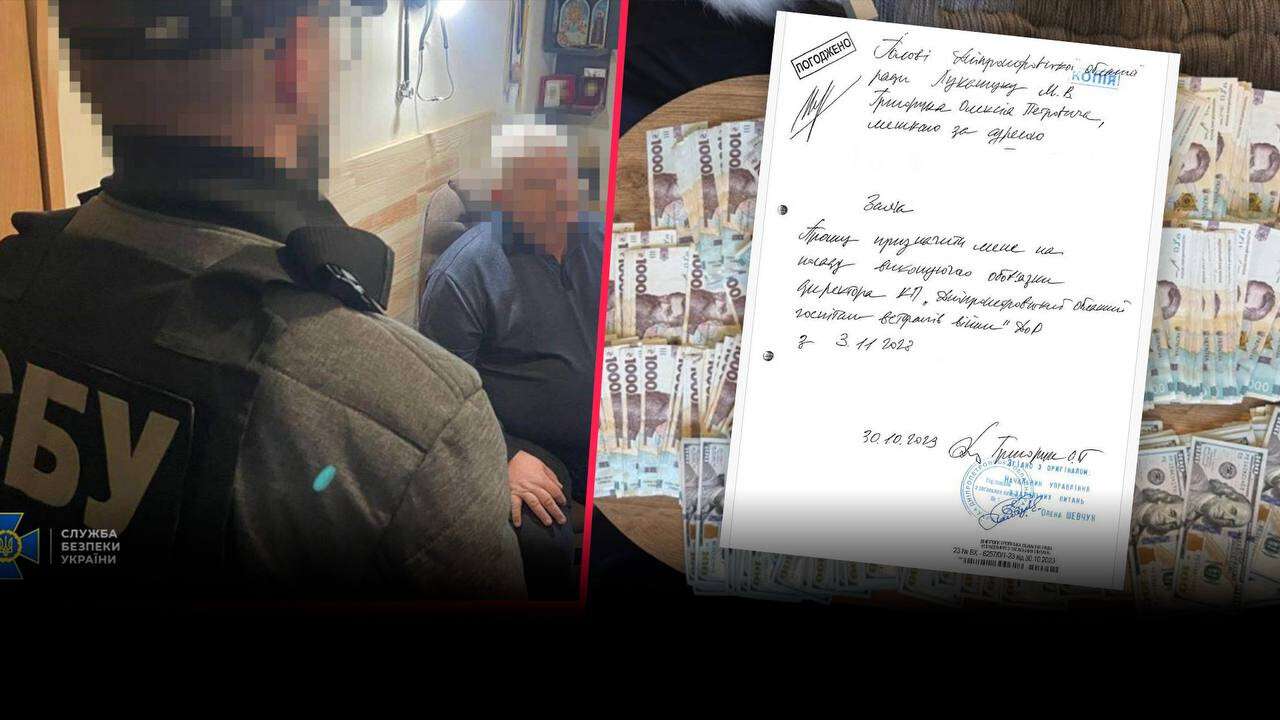 СБУ
СЛУЖБА
БЕЗПЕКИ
УКРАЇНИ
ПОГОДЖЕНО
КОПІЯ
Голові Дніпропетровської обласної
ради Лукашуку М.В.
Григорука Олексія Петровича,
мешкаю за адресою
Заява
Прошу призначити мене на
посаду виконуючого обов'язки
директора КП „Дніпропетровський обласний
госпіталь ветеранів війни" ДОР
з 3.11 2023
30.10.2023
Григорук О.П
ЗГІДНО З ОРИГІНАЛОМ
НАЧАЛЬНИК УПРАВЛІННЯ
ОЛЕНА ШЕВЧУК
30.10.2023
1000
1000
1000
1000
1000
1000
100
100